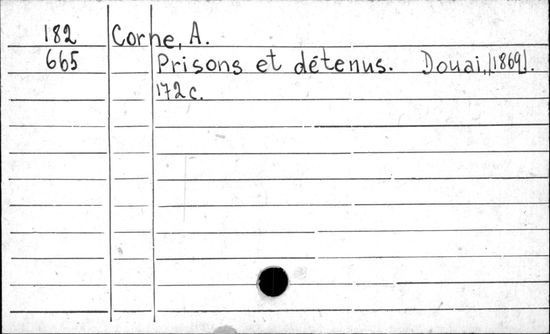 182 Corne, A.
665 Prisons et détenus. Douai, [1869].
172 c.